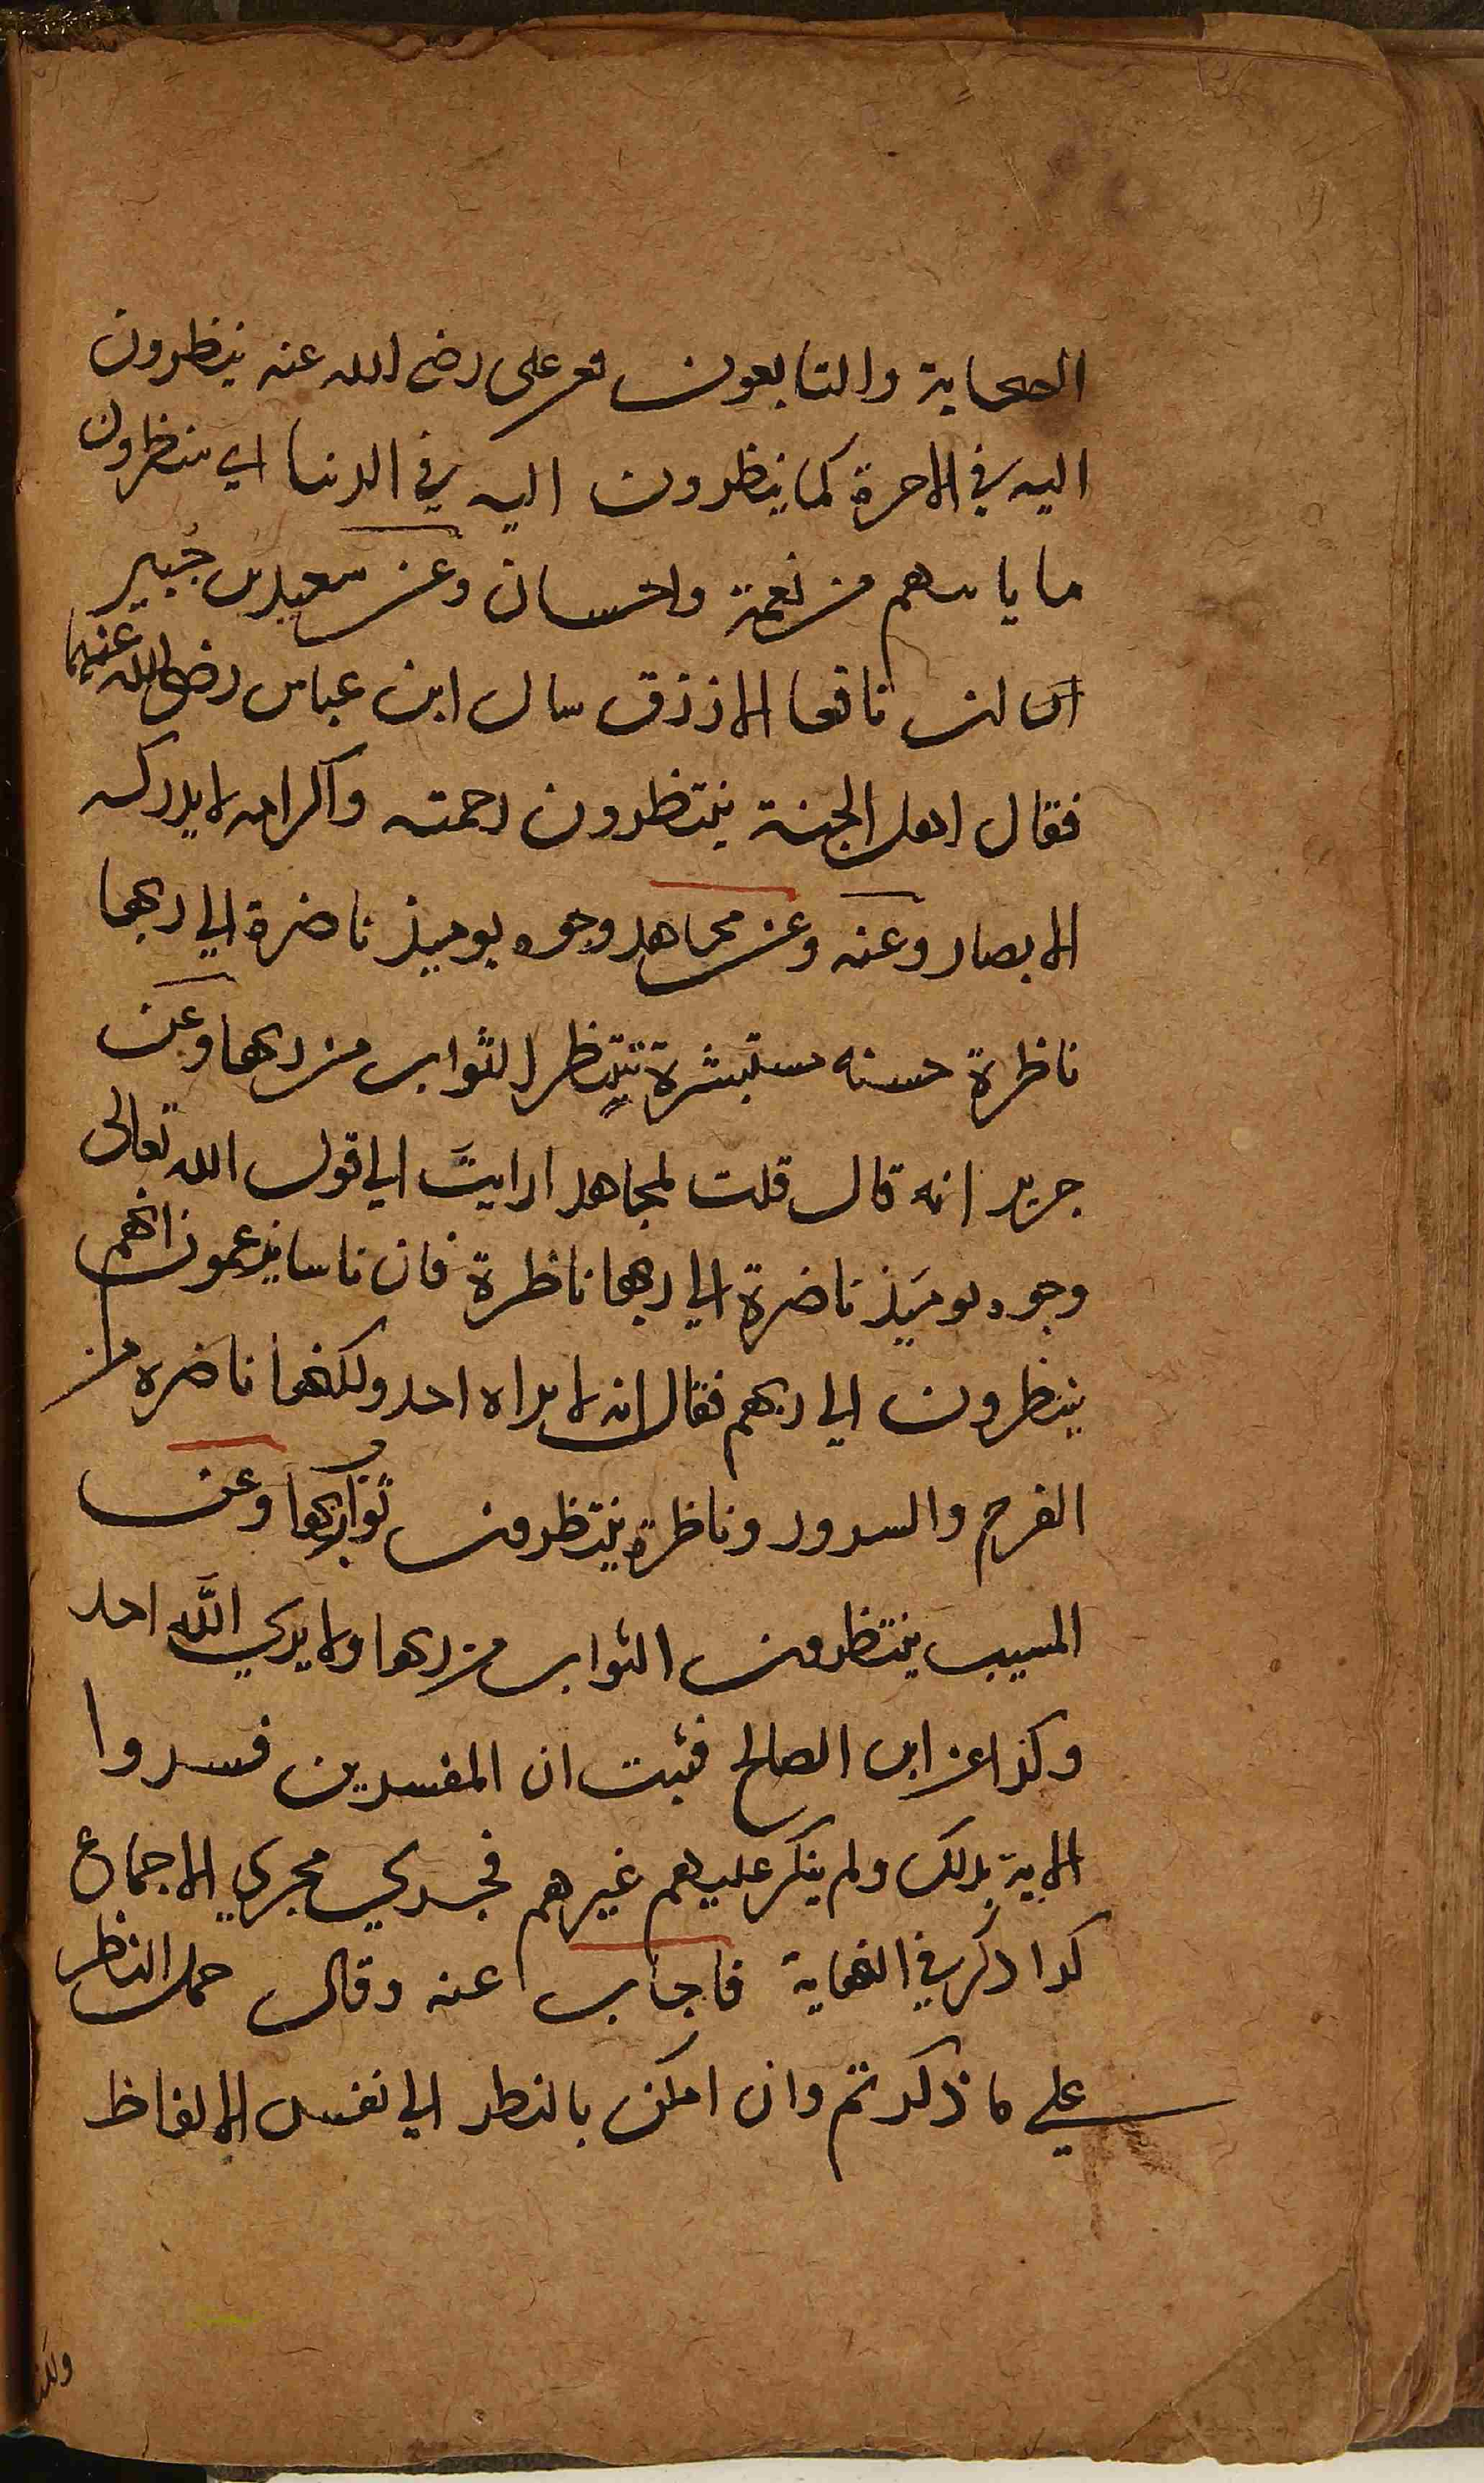 الصحابة والتابعون فعن على رضى الله عنه ينظرون
اليه في الاخرة كما ينظرون اليه في الدنيا اي ينتظرون
ما ياتيهم من نعمة واحسان وعن سعيد بن جُبير
ان نافعا الازرق سال ابن عباس رضى الله عنهما
فقال اهل الجنة ينتظرون رحمته واكرامه لا يدركه
الابصار وعنه وعن مجاهد وجوه يوميذ ناضرة الي ربها
ناظرة حسنه مستبشرة تنتظر الثواب من ربها وعن
جرير انه قال قلت لمجاهد ارايت الي قول الله تعالى
وجوه يوميذ ناضرة الي ربها ناظرة فان ناسا يزعمون انهم
ينظرون الي ربهم فقال انه لا يراه احد ولكنها ناضره من
الفرح والسرور وناظرة ينتظرون ثواب ربها وعن
المسيب ينتظرون الثواب من ربها ولا يري الله احد
وكذا عن ابي الصالح فثبت ان المفسرين فسروا
الاية بذلك ولم ينكر عليهم غيرهم فجري مجري الاجماع
كذا ذكر في النهاية فاجاب عنه وقال حمل النظر
علي ما ذكرتم وان امكن بالنظر الي نفس الالفاظ